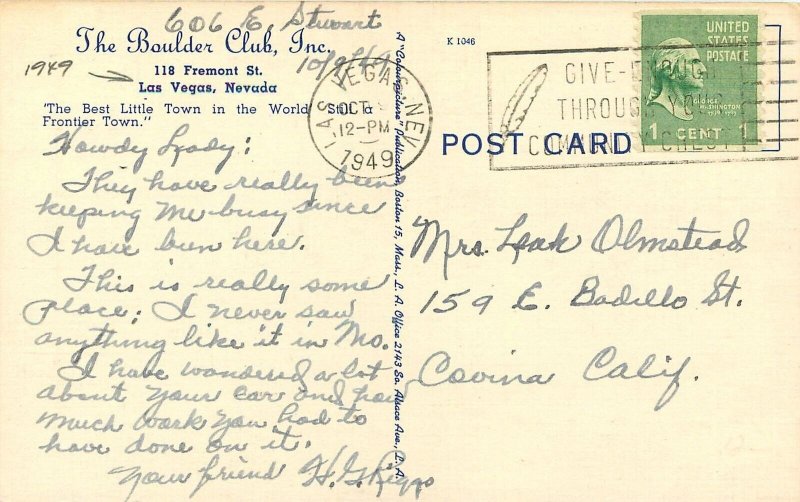 606 E. Stewart
10/9/49
The Boulder Club, Inc.
118 Fremont St.
Las Vegas, Nevada
1949
"The Best Little Town in the World Still a
Frontier Town."
Howdy Lady:
They have really been
keeping me busy since
I have been here.
This is really some
place; I never saw
anything like it in Mo.
I have wondered a lot
about your car and how
much work you had to
have done on it.
Your friend H. G. Riggs
A "Colourpicture" Publication, Boston 15, Mass., L. A. Office 2143 So. Alsace Ave., L. A.
K 1046
LAS VEGAS, NEV.
OCT 9
12-PM
1949
GIVE-ENOUGH
THROUGH YOUR
COMMUNITY CHEST
UNITED
STATES
POSTAGE
GEORGE
WASHINGTON
1 CENT 1
POST CARD
Mrs. Leak Olmstead
159 E. Badillo St.
Covina Calif.